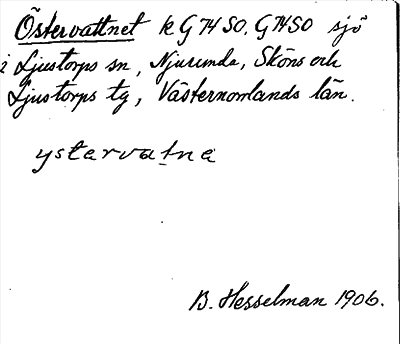 Östervattnet k G74SO. G74SO sjö
i Ljustorps sn, Njurunda, Sköns och
Ljustorps tg, Västernorrlands län.
ystərvatnə
B. Hesselman 1906.